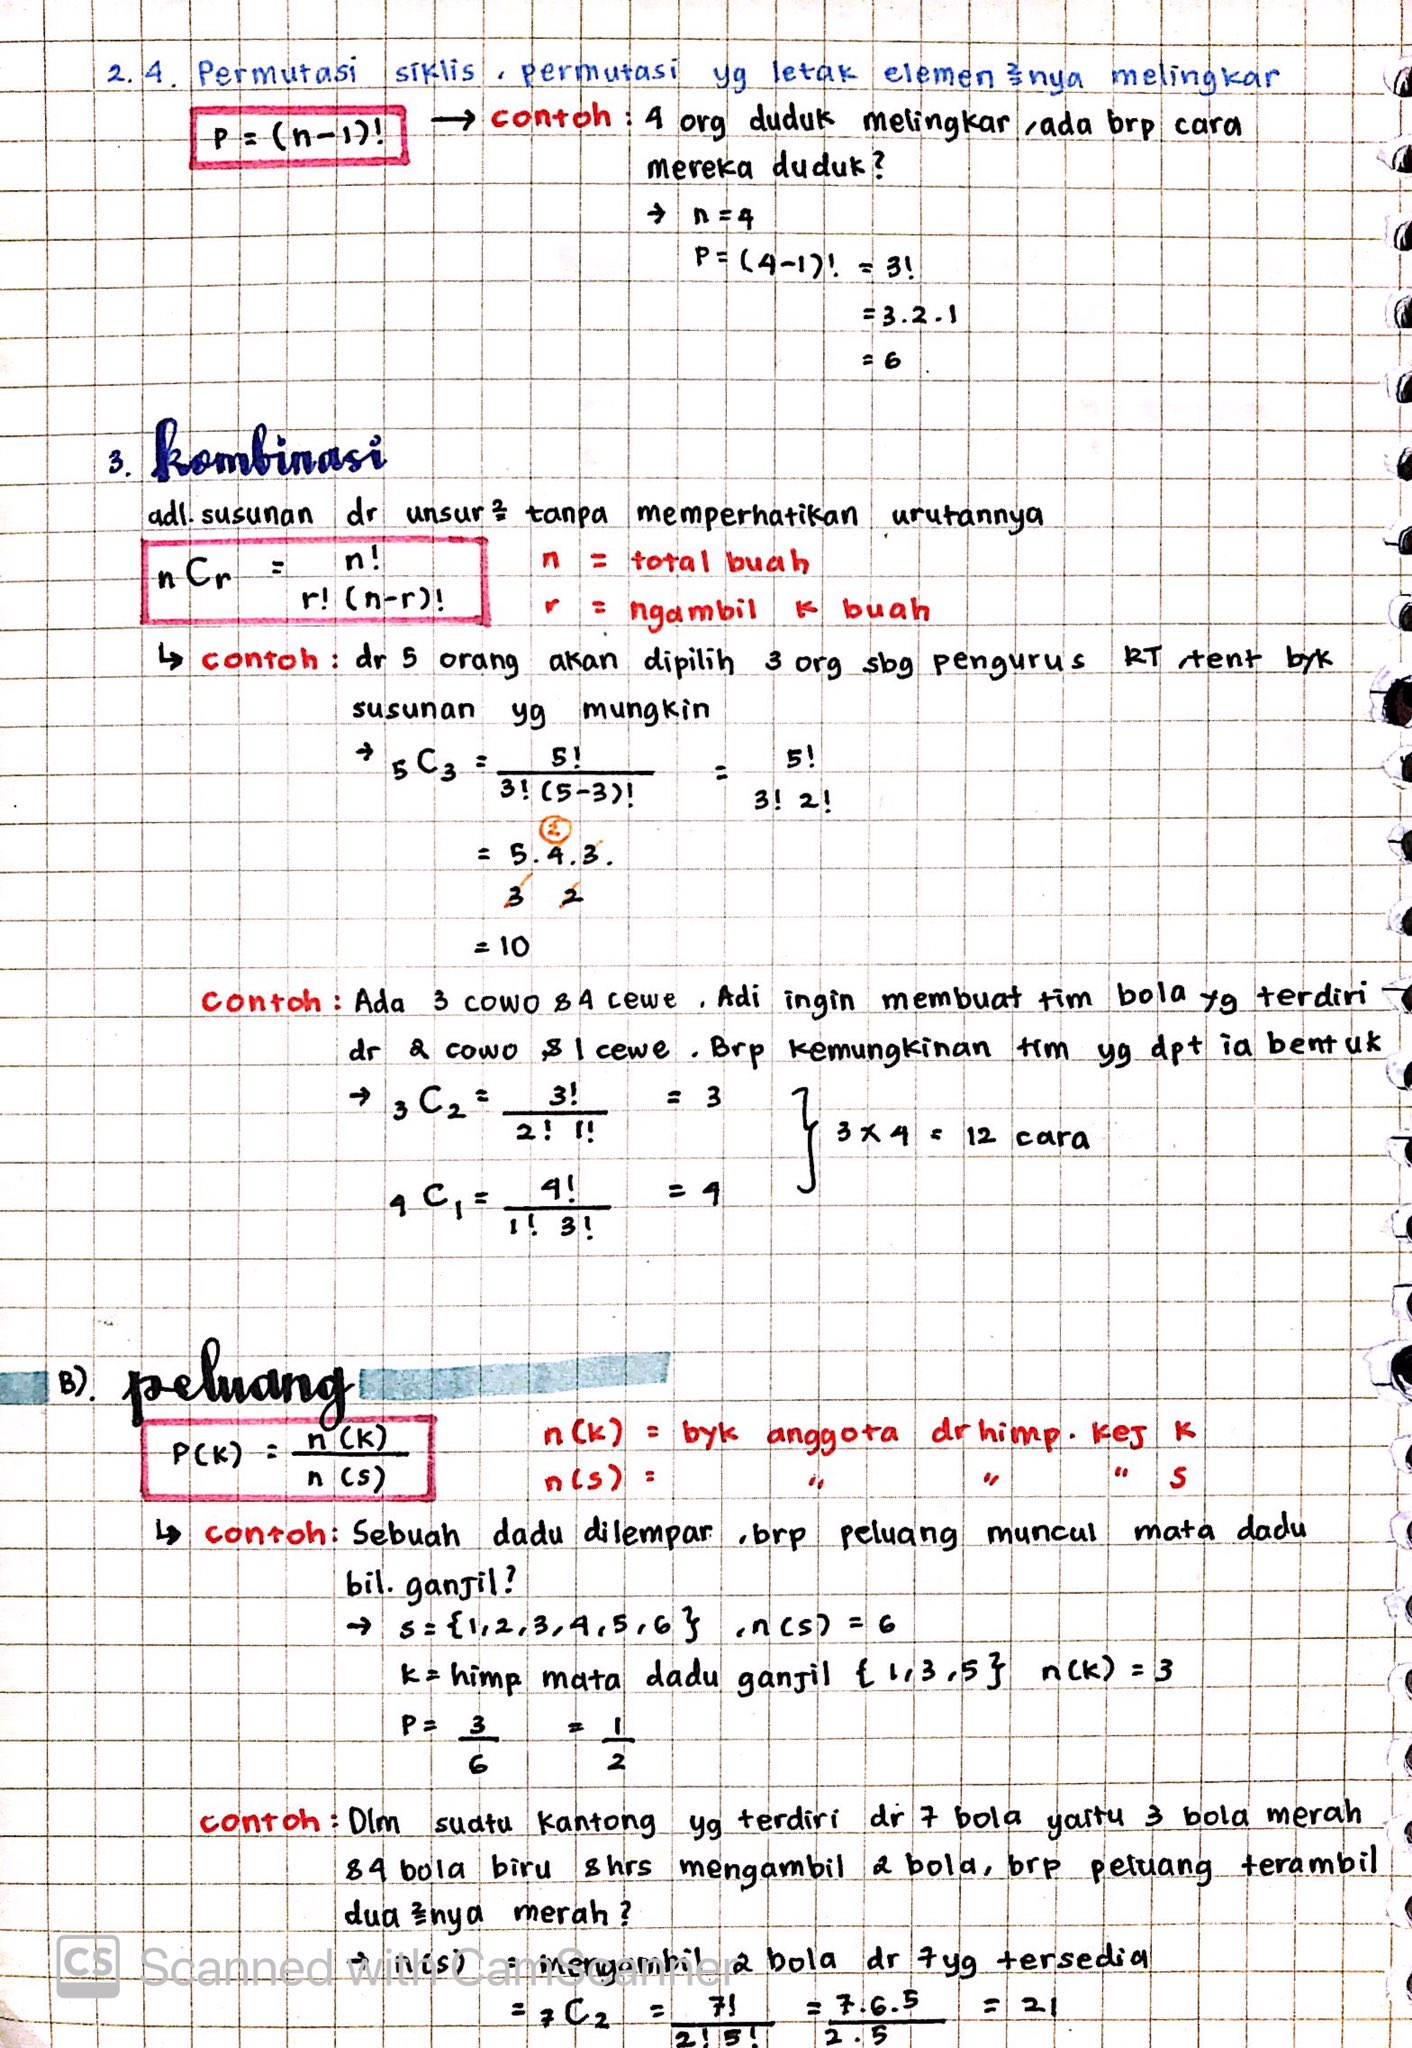 2.4. Permutasi siklis, permutasi yg letak elemen²nya melingkar
P = (n-1)! → contoh : 4 org duduk melingkar, ada brp cara
mereka duduk?
→ n = 4
P = (4-1)! = 3!
= 3.2.1
= 6
3. kombinasi
adl. susunan dr unsur² tanpa memperhatikan urutannya
nCr = n! / r! (n-r)!
n = total buah
r = ngambil k buah
↳ contoh : dr 5 orang akan dipilih 3 org sbg pengurus RT, tent byk
susunan yg mungkin
→ 5C3 = 5! / 3! (5-3)! = 5! / 3! 2!
②
= 5.4.3.
3 2
= 10
Contoh : Ada 3 cowo & 4 cewe. Adi ingin membuat tim bola yg terdiri
dr 2 cowo & 1 cewe. Brp kemungkinan tim yg dpt ia bentuk
→ 3C2 = 3! / 2! 1! = 3
} 3 x 4 = 12 cara
4C1 = 4! / 1! 3! = 4
B). peluang
P(K) = n(K) / n(S)
n(K) = byk anggota dr himp. kej K
n(S) = " " " S
↳ contoh : Sebuah dadu dilempar, brp peluang muncul mata dadu
bil. ganjil?
→ S = {1,2,3,4,5,6}, n(S) = 6
K = himp mata dadu ganjil {1,3,5} n(K) = 3
P = 3/6 = 1/2
contoh : Dlm suatu kantong yg terdiri dr 7 bola yaitu 3 bola merah
& 4 bola biru & hrs mengambil 2 bola, brp peluang terambil
dua²nya merah?
→ n(S) = mengambil 2 bola dr 7 yg tersedia
= 7C2 = 7! / 2! 5! = 7.6.5 / 2.5 = 21
CS Scanned with CamScanner